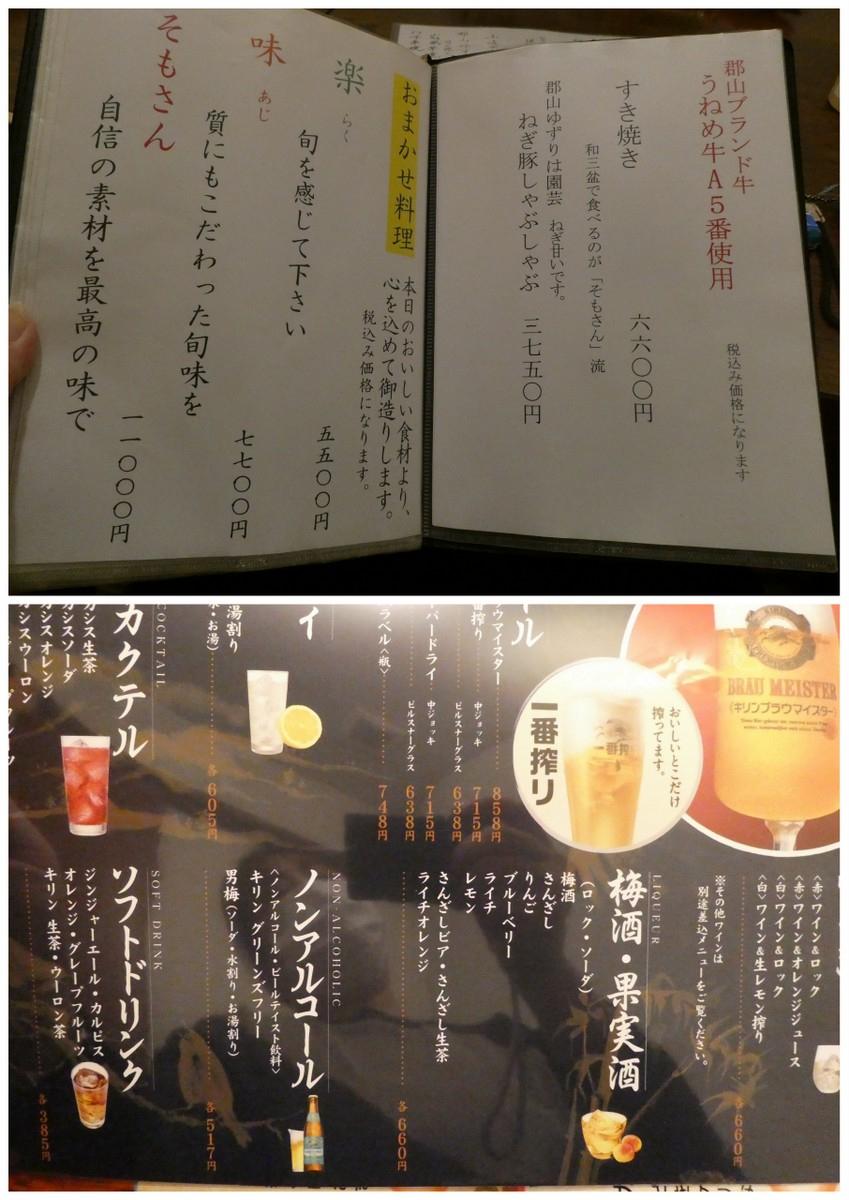 郡山ブランド牛
うねめ牛A5番使用
税込み価格になります
すき焼き 六六〇〇円
和三盆で食べるのが「そもさん」流
郡山ゆずりは園芸 ねぎ甘いです。
ねぎ豚しゃぶしゃぶ 三七五〇円
おまかせ料理
本日のおいしい食材より、
心を込めて御造りします。
税込み価格になります。
楽
らく
旬を感じて下さい 五五〇〇円
味
あじ
質にもこだわった旬味を 七七〇〇円
そもさん
自信の素材を最高の味で 一一〇〇〇円
BRAU MEISTER
〈キリンブラウマイスター〉
おいしいとこだけ
搾ってます。
一番搾り
ール
ウマイスター 858円
番搾り 中ジョッキ 715円
ピルスナーグラス 638円
ーパードライ 中ジョッキ 715円
ピルスナーグラス 638円
ラベル〈瓶〉 748円
イ
湯割り
水・お湯) 各605円
COCKTAIL
カクテル
カシス生茶
カシスソーダ
カシスオレンジ
カシスウーロン
〈赤〉ワイン&ロック
〈赤〉ワイン&オレンジジュース
〈白〉ワイン&ロック
〈白〉ワイン&生レモン搾り
各660円
※その他ワインは
別途差込メニューをご覧ください。
LIQUEUR
梅酒・果実酒
(ロック・ソーダ)
梅酒
さんざし
りんご
ブルーベリー
ライチ
レモン
さんざしビア・さんざし生茶
ライチオレンジ
各660円
NON ALCOHOLIC
ノンアルコール
〈ノンアルコール・ビールテイスト飲料〉
キリン グリーンズフリー
男梅(ソーダ・水割り・お湯割り)
各517円
SOFT DRINK
ソフトドリンク
ジンジャーエール・カルピス
オレンジ・グレープフルーツ
キリン 生茶・ウーロン茶
各385円